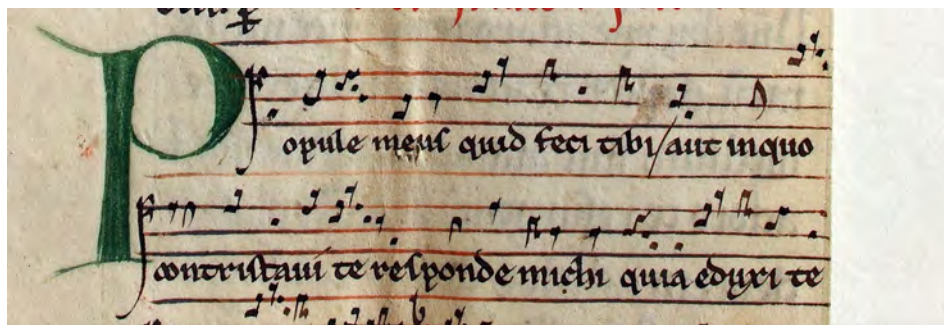 Popule meus quid feci tibi / aut inquo
contristaui te responde michi quia eduxi te